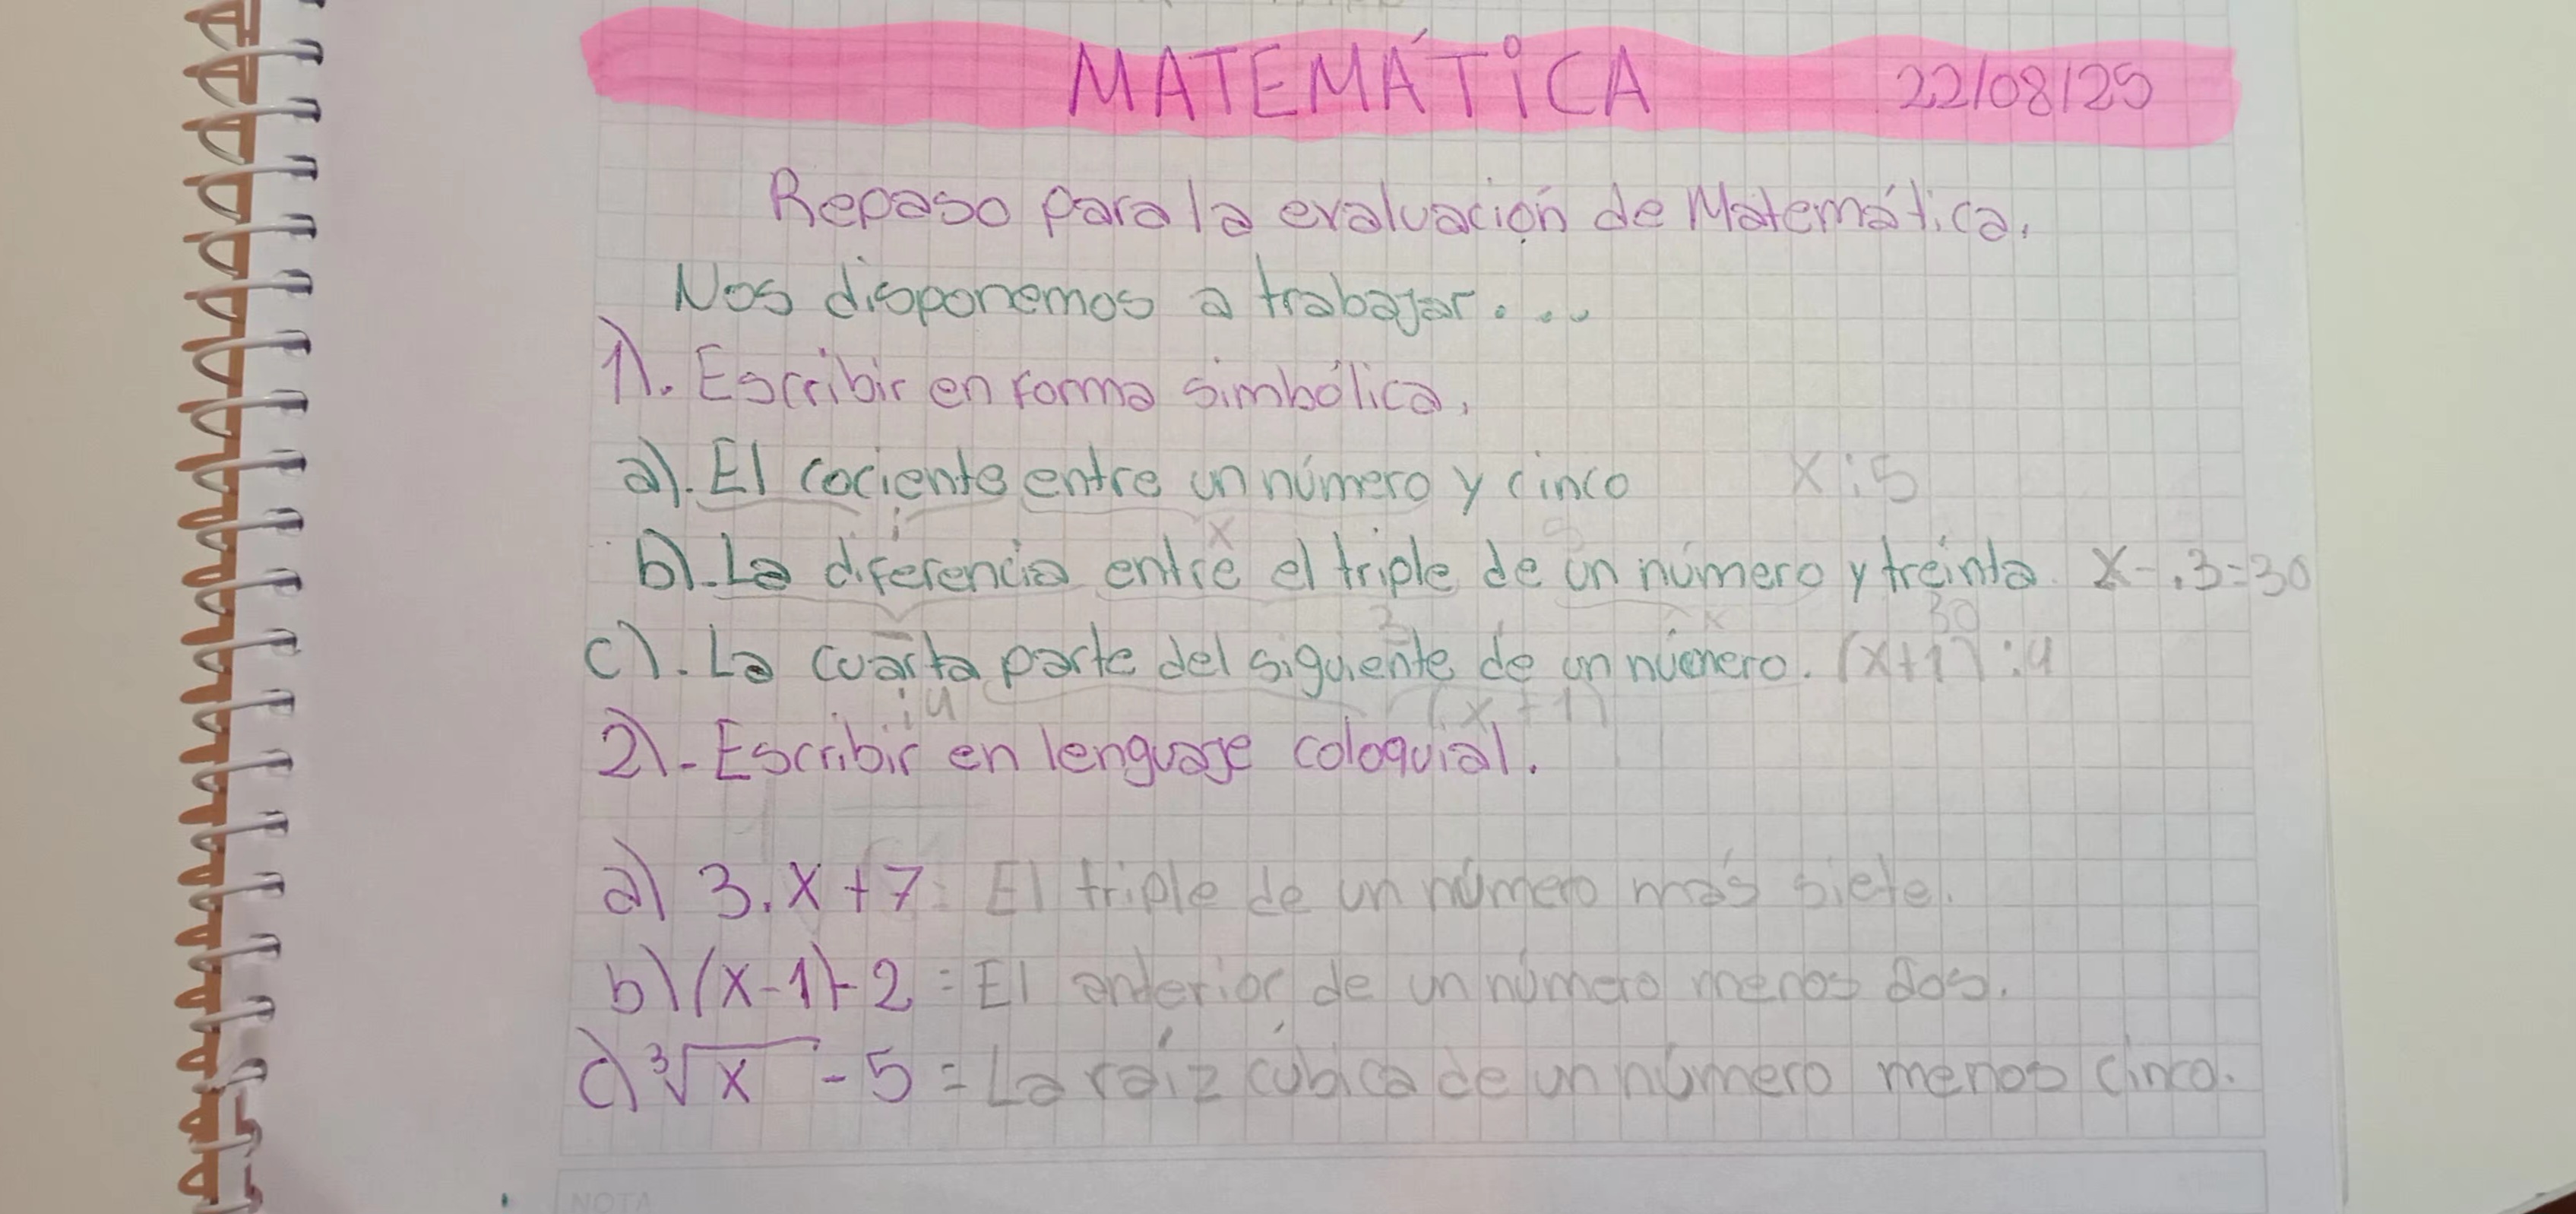 MATEMÁTICA 22/08/25
Repaso para la evaluación de Matemática.
Nos disponemos a trabajar....
1). Escribir en forma simbólica.
a). El cociente entre un número y cinco x:5
: x 5
b).-La diferencia entre el triple de un número y treinta x-.3=30
- 3 x 30
c). La cuarta parte del siguiente de un número. (x+1):4
:4 (x+1)
2).-Escribir en lenguaje coloquial.
a) 3.x+7= El triple de un número más siete.
b) (x-1)-2 = El anterior de un número menos dos.
c) ³√x - 5 = La raíz cúbica de un número menos cinco.
NOTA